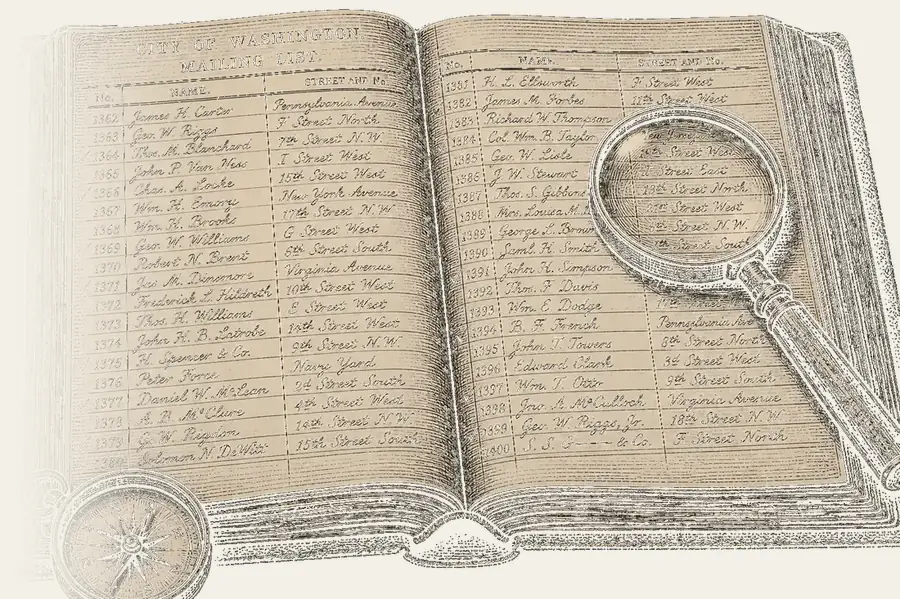 CITY OF WASHINGTON
MAILING LIST.
No. NAME. STREET AND No.
1362 James H. Carter Pennsylvania Avenue
1363 Geo. W. Riggs F Street North
1364 Thos. M. Blanchard 7th Street N.W.
1365 John P. Van Ness I Street West
1366 Chas. A. Locke 15th Street West
1367 Wm. H. Emory New York Avenue
1368 Wm. H. Brooks 17th Street N.W.
1369 Geo. W. Williams G Street West
1370 Robert N. Brent 6th Street South
1371 Jas M. Dinsmore Virginia Avenue
1372 Frederick L. Hildreth 10th Street West
1373 Thos. H. Williams E Street West
1374 John H. B. Latrobe 14th Street West
1375 H. Spencer & Co. 9th Street N.W.
1376 Peter Force Navy Yard
1377 Daniel W. McLean Street South
1378 A. B. McClure 4th Street West
1379 G. W. 14th Street N.W.
1380 Solomon N. DeWitt 15th Street South
No. NAME. STREET AND No.
1381 H. L. Ellsworth F Street West
1382 James M. Forbes 11th Street West
1383 Richard W. Thompson
1384 Col. Wm. B. Taylor
1385 Geo. W. Lisle Street West
1386 J. W. Stewart Street East
1387 Thos. S. Gibbons 13th Street North
1388 Mrs. Louisa M. Street West
1389 George L. Street N.W.
1390 Saml. H. Smith Street South
1391 John H. Simpson
1392 Thos. F. Davis
1393 Wm E. Dodge
1394 B. F. French Pennsylvania
1395 John T. Towers 8th Street North
1396 Edward Clark 3d Street West
1397 Wm. T. Otto 9th Street South
1398 Jno. A. McCulloch Virginia Avenue
1399 Geo. W. Riggs, Jr. 18th Street N.W.
1400 S. S. & Co. F Street North